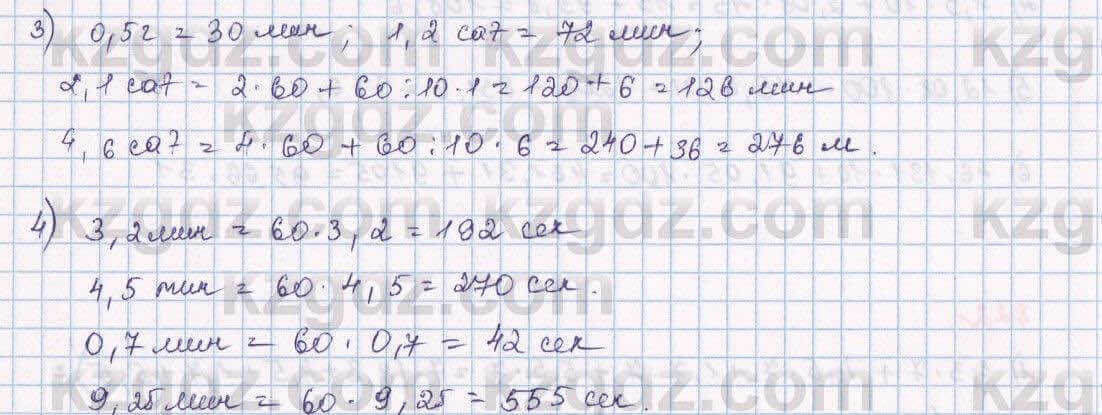 3) 0,5г = 30 мин; 1,2 сат = 72 мин;
2,1 сат = 2·60 + 60:10·1 = 120 + 6 = 126 мин
4,6 сат = 4·60 + 60:10·6 = 240 + 36 = 276 м.
4) 3,2 мин = 60·3,2 = 192 сек
4,5 мин = 60·4,5 = 270 сек.
0,7 мин = 60·0,7 = 42 сек
9,25 мин = 60·9,25 = 555 сек.
kzgdz.com